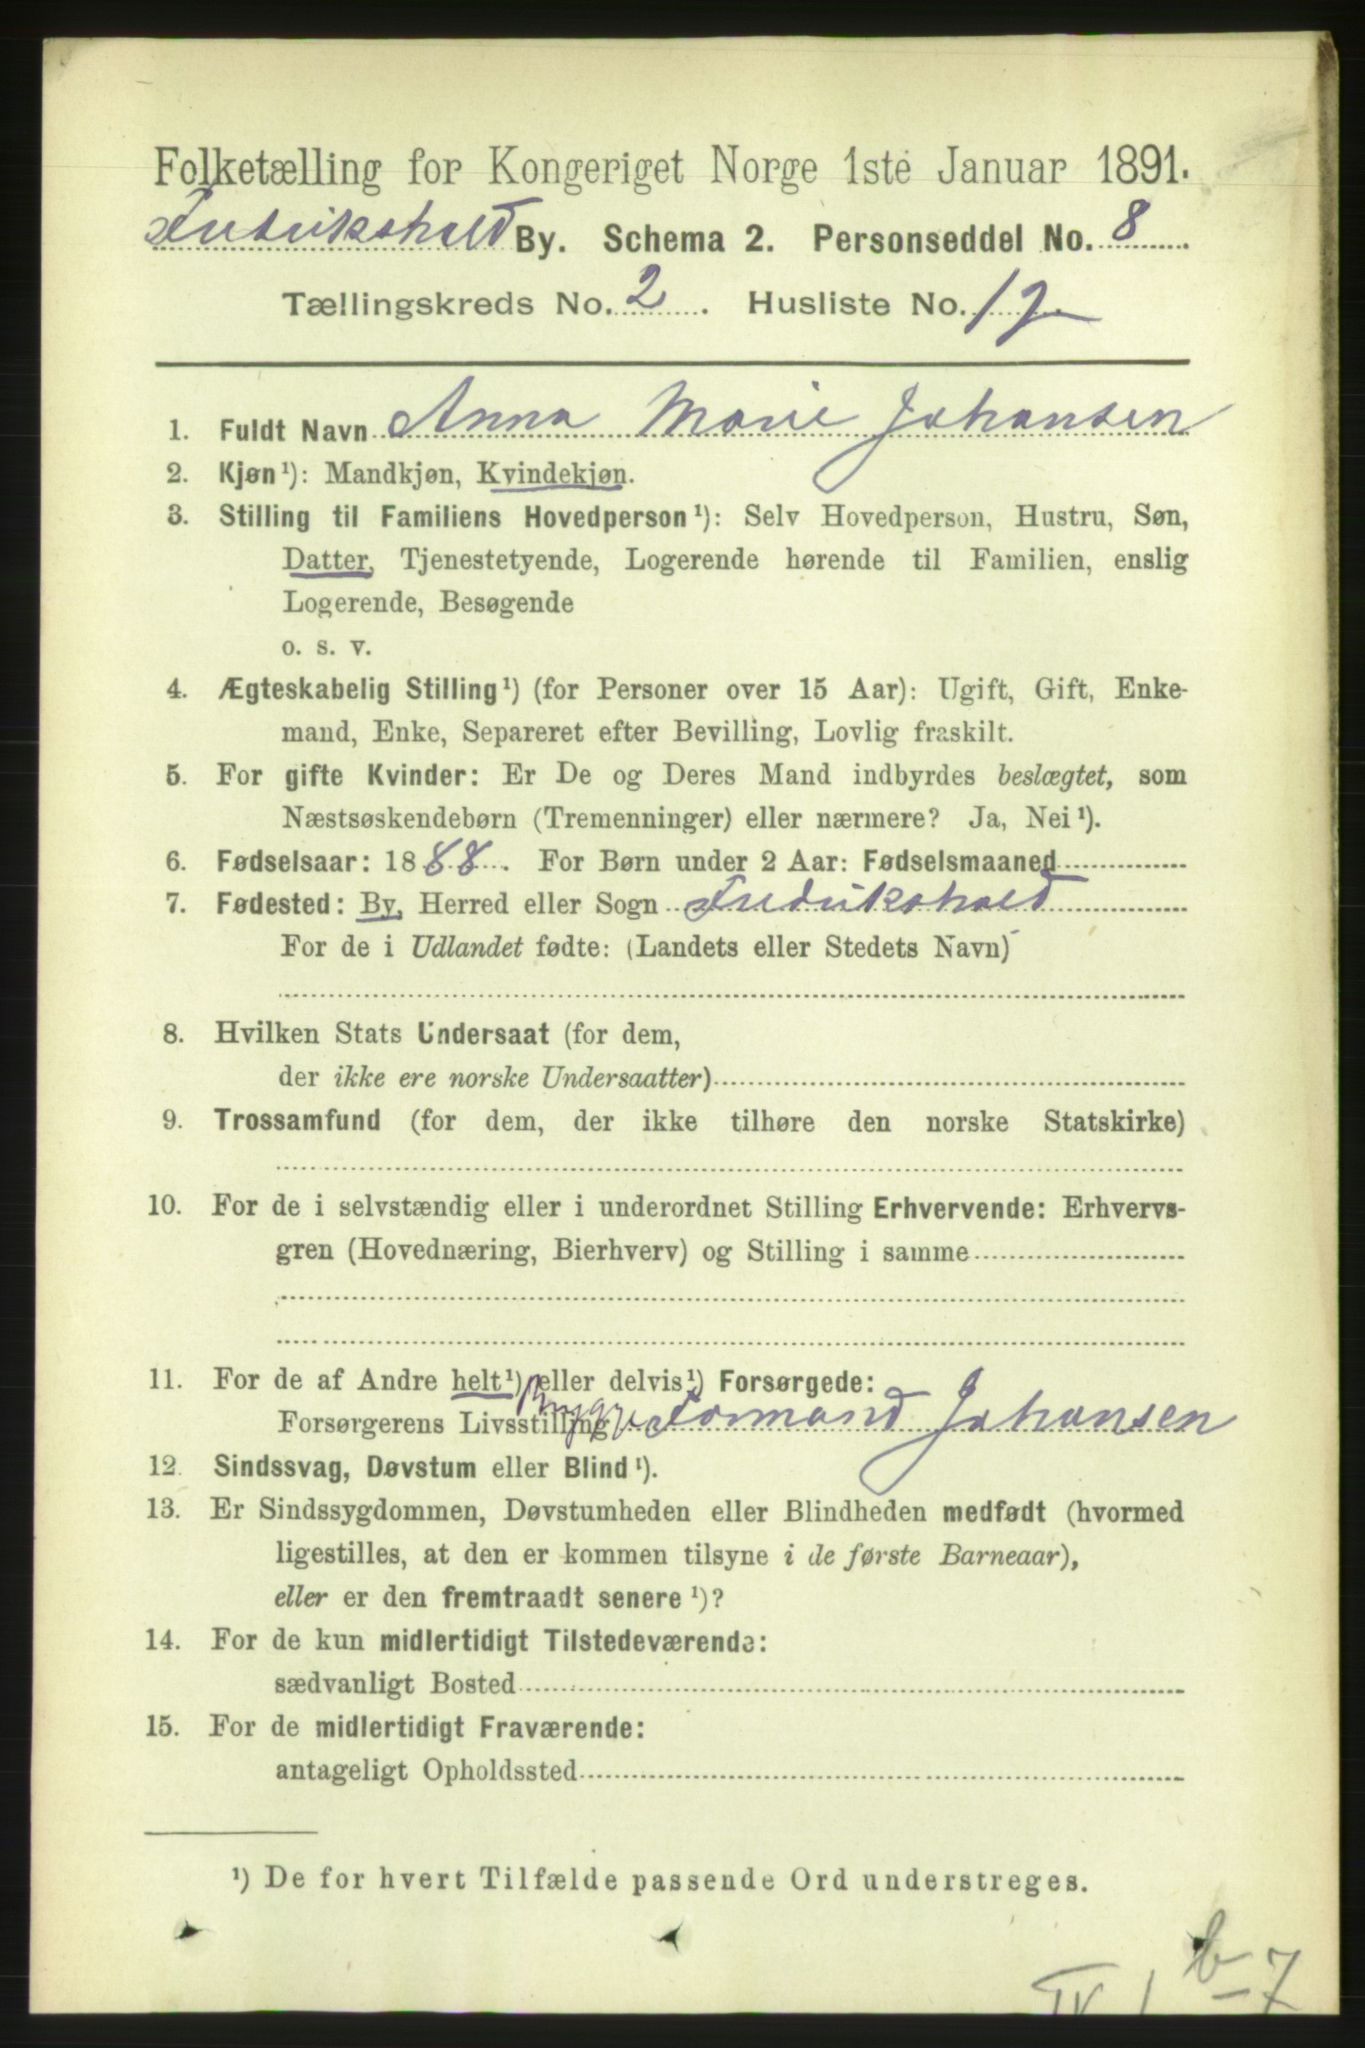 Folketælling for Kongeriget Norge 1ste Januar 1891.
Fredrikshald By. Schema 2. Personseddel No. 8
Tællingskreds No. 2. Husliste No. 12
1. Fuldt Navn Anna Marie Johansen
2. Kjøn¹): Mandkjøn, Kvindekjøn.
3. Stilling til Familiens Hovedperson¹): Selv Hovedperson, Hustru, Søn,
Datter, Tjenestetyende, Logerende hørende til Familien, enslig
Logerende, Besøgende
o. s. v.
4. Ægteskabelig Stilling¹) (for Personer over 15 Aar): Ugift, Gift, Enke-
mand, Enke, Separeret efter Bevilling, Lovlig fraskilt.
5. For gifte Kvinder: Er De og Deres Mand indbyrdes beslægtet, som
Næstsøskendebørn (Tremenninger) eller nærmere? Ja, Nei¹).
6. Fødselsaar: 1888. For Børn under 2 Aar: Fødselsmaaned
7. Fødested: By, Herred eller Sogn Fredrikshald
For de i Udlandet fødte: (Landets eller Stedets Navn)
8. Hvilken Stats Undersaat (for dem,
der ikke ere norske Undersaatter)
9. Trossamfund (for dem, der ikke tilhøre den norske Statskirke)
10. For de i selvstændig eller i underordnet Stilling Erhvervende: Erhvervs-
gren (Hovednæring, Bierhverv) og Stilling i samme
11. For de af Andre helt¹) eller delvis¹) Forsørgede:
Forsørgerens Livsstilling Brygge Formand Johansen
12. Sindssvag, Døvstum eller Blind¹).
13. Er Sindssygdommen, Døvstumheden eller Blindheden medfødt (hvormed
ligestilles, at den er kommen tilsyne i de første Barneaar),
eller er den fremtraadt senere¹)?
14. For de kun midlertidigt Tilstedeværende:
sædvanligt Bosted
15. For de midlertidigt Fraværende:
antageligt Opholdssted
¹) De for hvert Tilfælde passende Ord understreges.
b-7